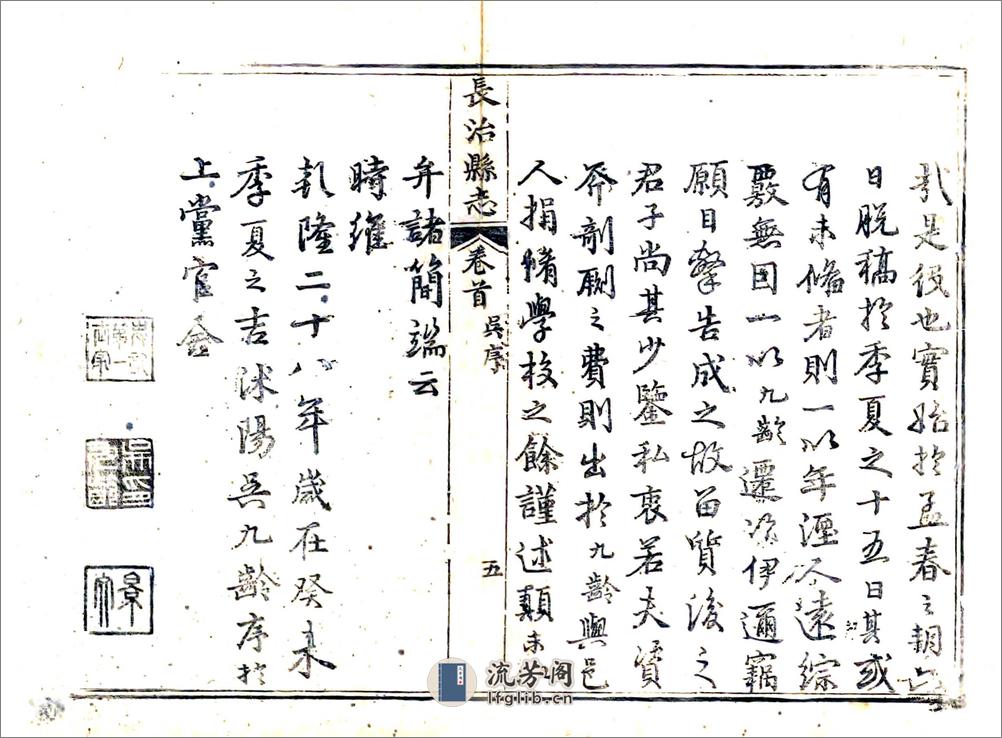 哉是役也實始於孟春之朔六
日脫稿於季夏之十五日其或
有未備者則一以年湮人遠綜
覈無因一以九齡遷次伊邇竊
願目擊告成之故留質後之
君子尚其少鑒私衷若夫資
斧剞劂之費則出於九齡與邑
人捐脩學校之餘謹述顛末
長治縣志 卷首 吳序 五
弁諸簡端云
時維
乾隆二十八年歲在癸未
季夏之吉沭陽吳九齡序於
上黨官舍
流芳阁
lfglib.cn